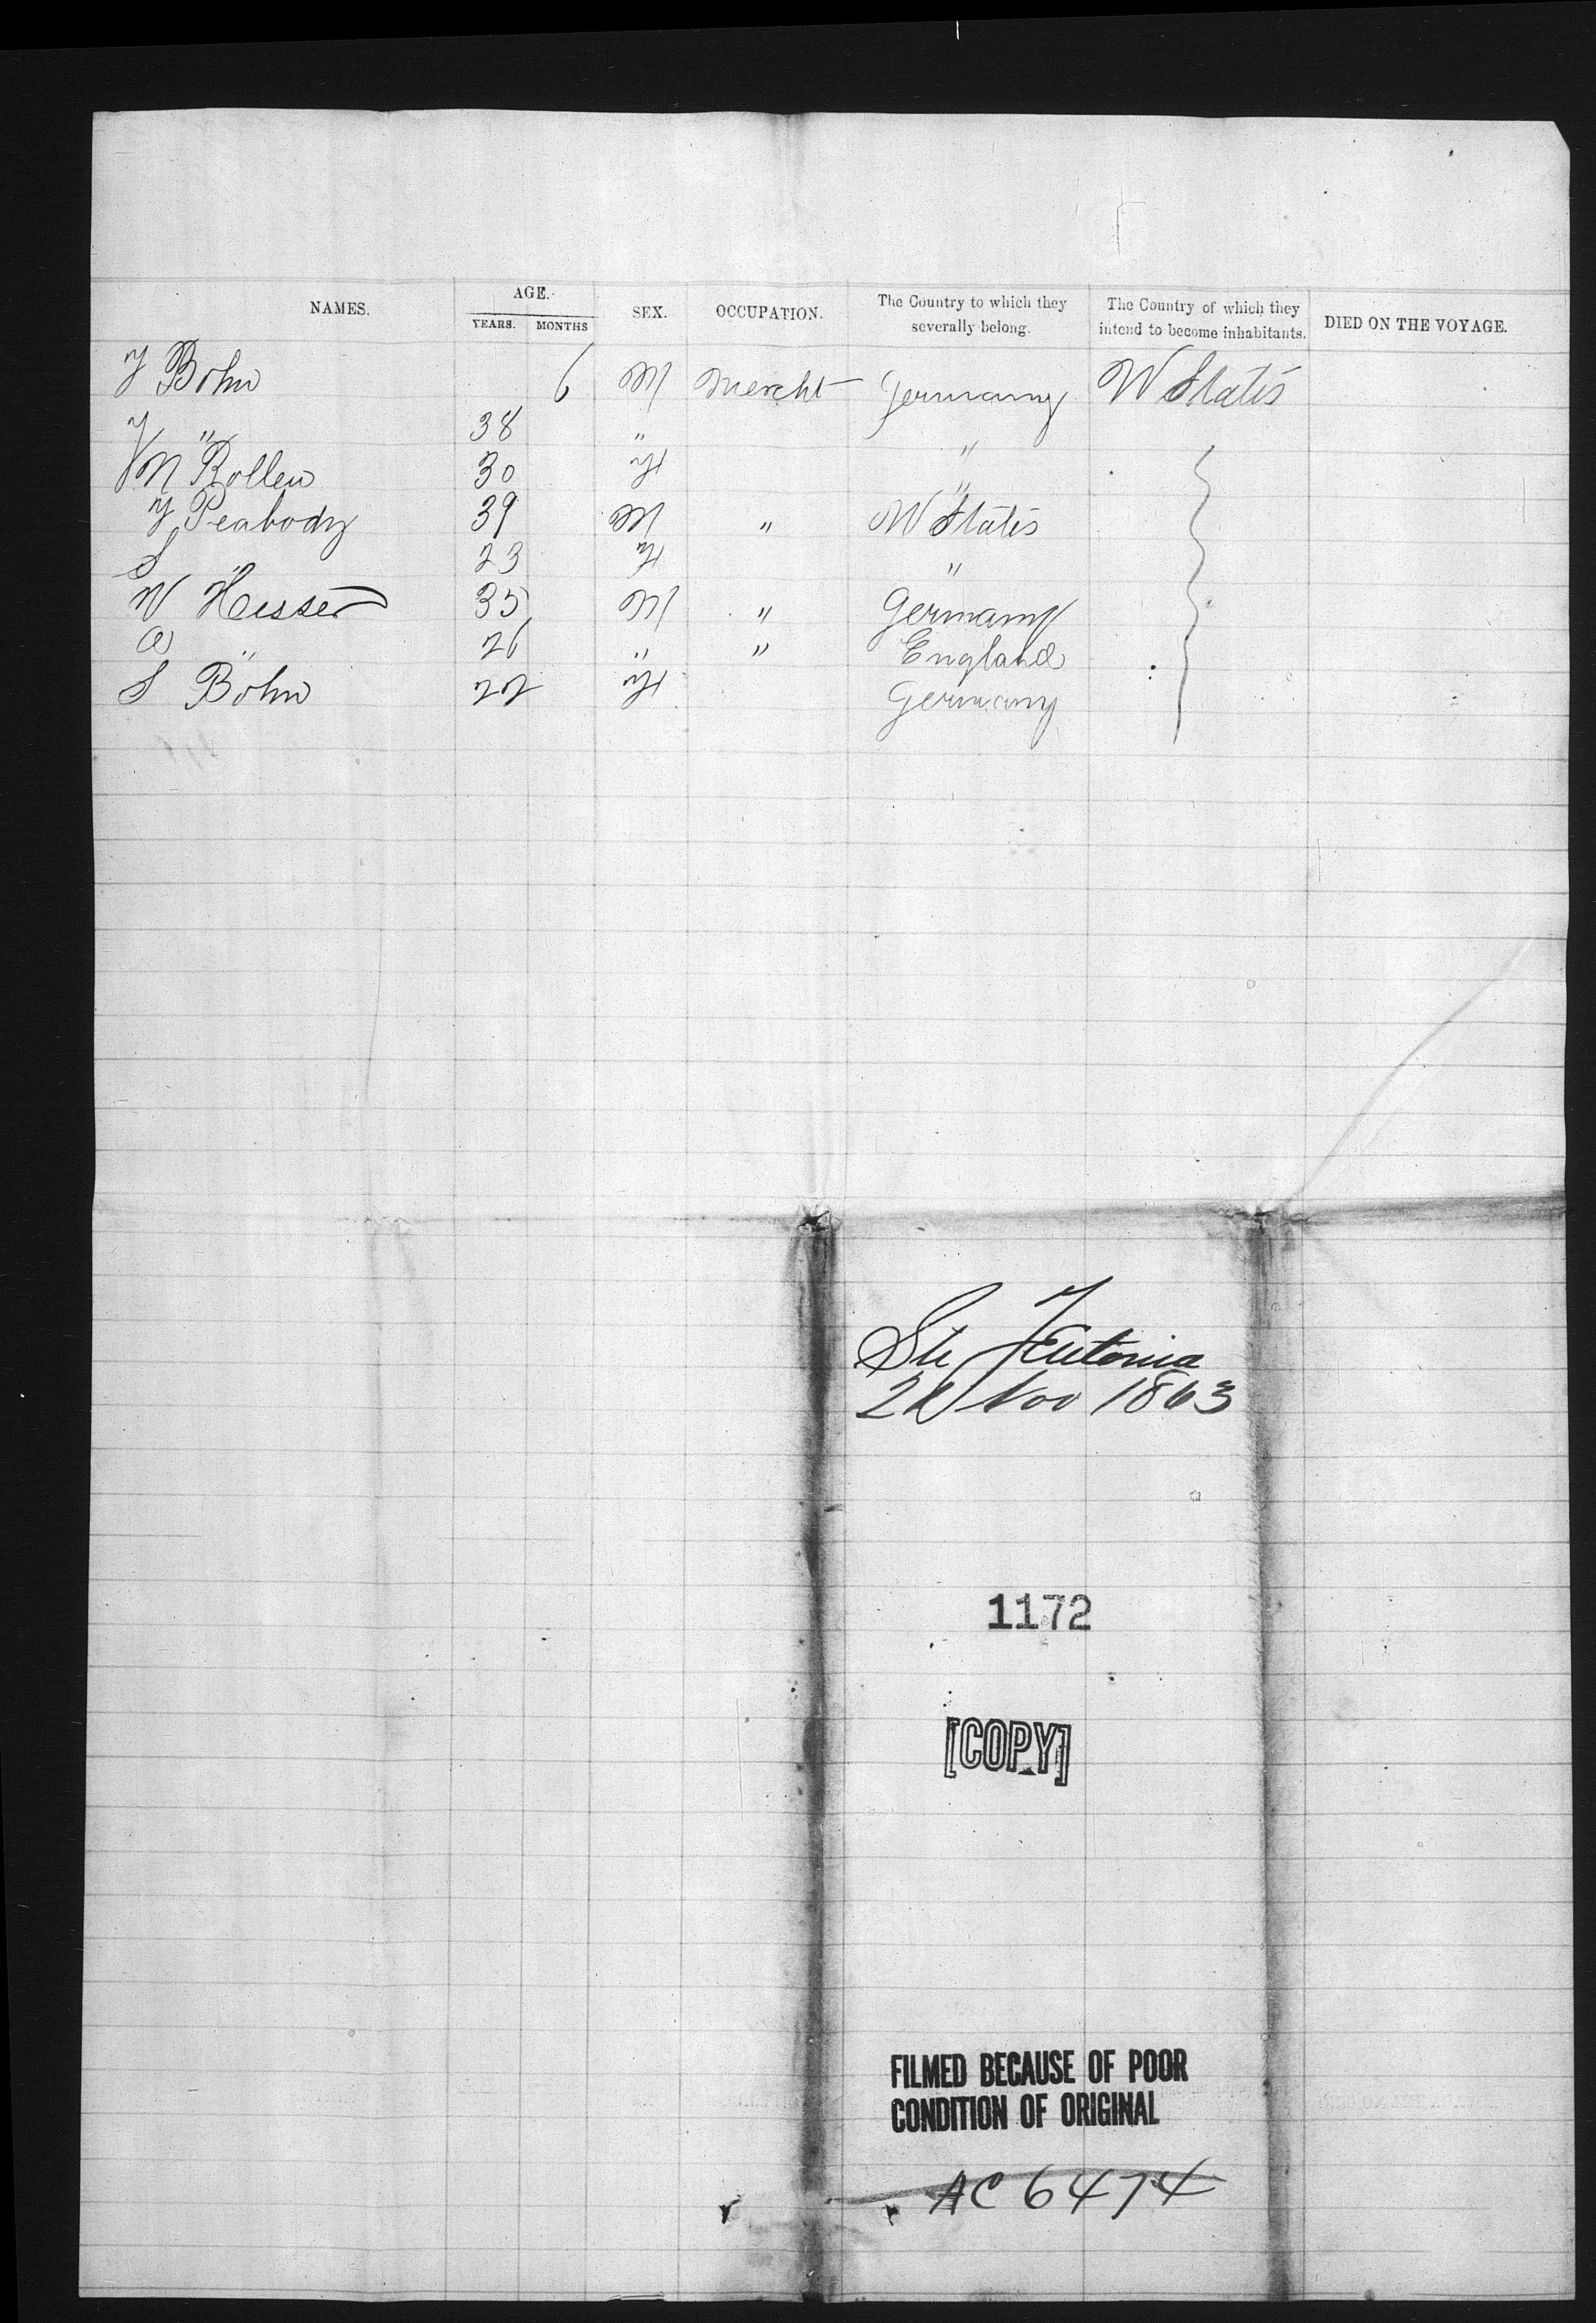 NAMES. AGE. YEARS. MONTHS SEX. OCCUPATION. The Country to which they severally belong. The Country of which they intend to become inhabitants. DIED ON THE VOYAGE.
J Bohn 6 M Mercht Germany U States
J " 38 " "
M Rollen 30 F "
J Peabody 39 M " U States
S " 23 F "
W Hesser 35 M " Germany
A " 26 " " England
S Bohn 22 F Germany
Str Teutonia
Nov 1863
1172
[COPY]
FILMED BECAUSE OF POOR
CONDITION OF ORIGINAL
AC 6474